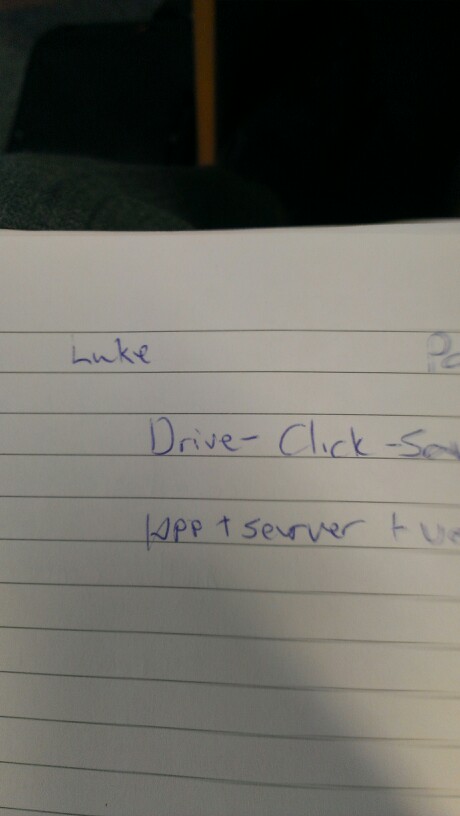 Luke
Drive- Click -Sav
App + seurver +